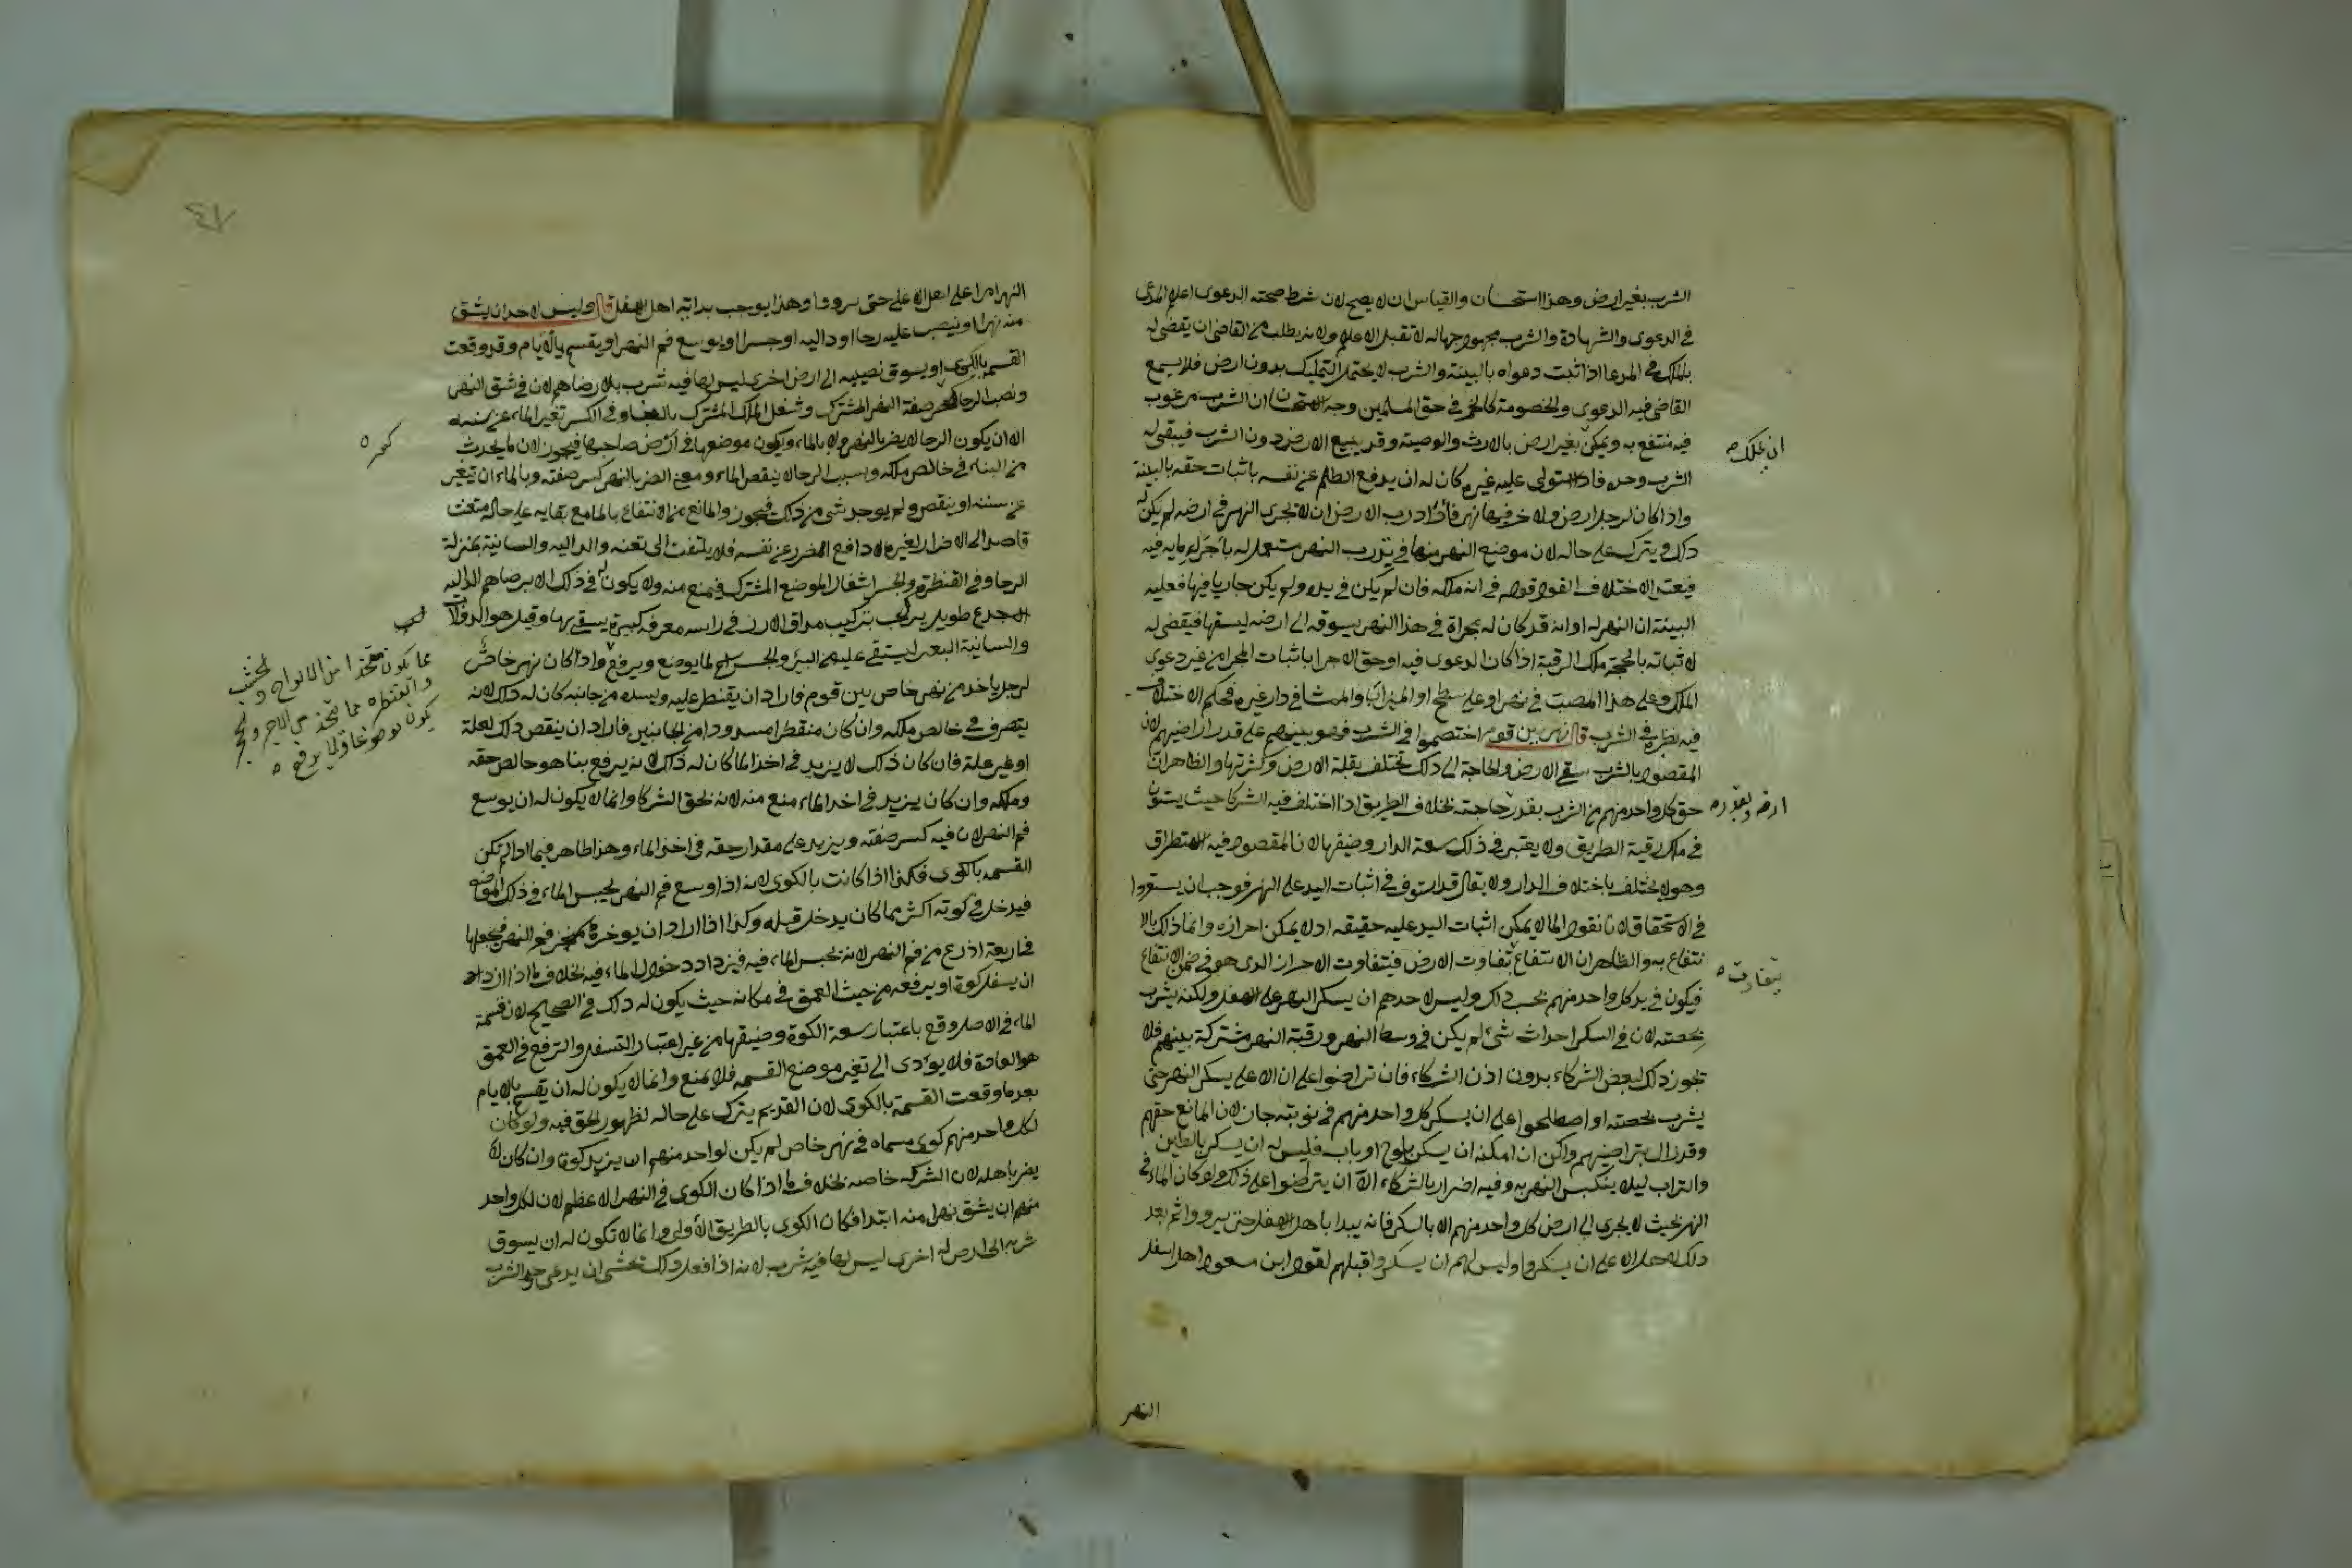 الشرب بغير ارض وهذا استحسان والقياس ان لا يصح لان شرط صحة الدعوى اعلام المدعى
في الدعوى والشهادة والشرب مجهول جهالة لا تقبل الاعلام ولانه يطلب من القاضي ان يقضي له
بالملك في المدعا اذا ثبت دعواه بالبينة والشرب لا يحتمل التمليك بدون ارض فلا يسمع
القاضي فيه الدعوى والخصومة كالخمر في حق المسلمين وجه الاستحسان ان الشرب مرغوب
فيه منتفع به ويمكن بغير ارض بالارث والوصية وقد يبيع الارض دون الشرب فيبقى له
ان يملك
الشرب وحده فاذا استولى عليه غيره كان له ان يدفع الظلم عن نفسه باثبات حقه بالبينة
واذا كان لرجل ارض ولاخر فيها نهر فاراد رب الارض ان لا يجري النهر في ارضه لم يكن له
ذلك ويترك على حاله لان موضع النهر منها في يد رب النهر مستعمل له باجراء مايه فيه
فيعتبر الاختلاف القول قوله في انه ملكه فان لم يكن في يده ولم يكن جاريا فيها فعليه
البينة ان النهر له او انه قد كان له مجراة في هذا النهر يسوقه الى ارضه ليسقها فيقضى له
لاثباته بالحجة ملك الرقبة اذا كان الدعوى فيه او حق الاجرا باثبات المجرا من غير دعوى
الملك وعلى هذا المصب في نهر او على سطح او الميزاب او الممشا في دار غيره فحكم الاختلاف
فيه نظيره في الشرب قال نهر بين قوم اختصموا في الشرب فهو بينهم على قدر اراضيهم لان
المقصود بالشرب سقي الارض والحاجة الى ذلك تختلف بقلة الارض وكثرتها والظاهر ان
حق كل واحد منهم من الشرب بقدر حاجته بخلاف الطريق اذا اختلف فيه الشركا حيث يستوون
ارضه وبقدره
في ملك رقبة الطريق ولا يعتبر في ذلك سعة الدار وضيقها لان المقصود فيه الاستطراق
وهو لا يختلف باختلاف الدار ولا يقال قد استوى في اثبات اليد على النهر فوجب ان يستووا
في الاستحقاق لانا نقول الما لا يمكن اثبات اليد عليه حقيقه اذ لا يمكن احرازه وانما ذلك بالا
نتفاع به والظاهر ان الانتفاع تفاوت الارض فيتفاوت الاحراز الذي هو في ضمن الانتفاع
يتفاوت
فيكون في يد كل واحد منهم بحسب ذلك وليس لاحدهم ان يسكر النهر على الاسفل ولكنه يشرب
بحصته لان في السكر احداث شئ لم يكن في وسط النهر ورقبة النهر مشتركة بينهم فلا
يجوز ذلك لبعض الشركاء بدون اذن الشركاء فان تراضوا على ان الاعلى يسكر النهر حتى
يشرب بحصته او اصطلحوا على ان يسكر كل واحد منهم في نوبته جاز لان المانع حقهم
وقد زال بتراضيهم ولكن ان امكنه ان يسكن بلوح او باب فليس له ان يسكر بالطين
والتراب ليلا ينكبس النهر به وفيه اضرار بالشركاء الا ان يتراضوا على ذلك ولو كان الماء في
النهر بحيث لا يجري الى ارض كل واحد منهم الا بالسكر فانه يبدا باهل الاسفل حتى يرووا ثم بعد
ذلك لاهل الاعلى ان يسكروا وليس لهم ان يسكروا قبلهم لقول ابن مسعود اهل اسفل
النهر
النهر امرا على اهل الاعلى حتى يرووا وهذا يوجب بداية اهل الاسفل قال وليس لاحد ان يشق
منه نهرا او ينصب عليه رحا او داليه او جسرا او يوسع فم النهر او يقسم بالايام وقد وقعت
القسمة بالكوى او يسوق نصيبه الى ارض اخرى ليس لها فيه شرب بلا رضاهم لان في شق النهر
ونصب الرحا كسر صفة النهر المشترك وشغل الملك المشترك بالبناء وفي الكسر تغير الماء عن سننه
الا ان يكون الرحا لا يضر بالنهر ولا بالماء ويكون موضعها في ارض صاحبها فيجوز لان ما يحدث
من البناء في خالص ملكه وبسبب الرحا لا ينقص الماء ومعنى الضرر بالنهر كسر صفته وبالماء ان تتغير
عن سننه او ينقص ولم يوجد شي من ذلك فيجوز والمانع من الانتفاع بالما مع بقايه على حاله متعنت
قاصد الى الاضرار لغيره لا دافع الضرر عن نفسه فلا يلتفت الى تعنته والداليه والسانية بمنزلة
الرحا وفي القنطرة والجسر اشغال الموضع المشترك فيمنع منه ولا يكون له في ذلك الا برضاهم الداليه
جذع طويل يركب تركيب مداق الارز في راسه مغرفه كبيرة يسقى بها وقيل هو الدولاب
والسانية البعير ليستقى عليه من البئر والجسر اسم لما يوضع ويرفع واذا كان نهر خاص
مما يكون متخذا من الالواح والخشب
والقنطرة مما تتخذ من الاجر والحجر
يكون موضوعا ولا يرفع
لرجل ياخذ من نهر خاص بين قوم فاراد ان يقنطر عليه ويسده من جانبه كان له ذلك لانه
يتصرف في خالص ملكه وان كان منقطرا مسدودا من الجانبين فاراد ان ينقص ذلك لعلة
او غير علة فان كان ذلك لا يزيد في اخذ الما كان له ذلك لانه يرفع بنا هو خالص حقه
وملكه وان كان يزيد في اخذ الماء منع منه لانه لحق الشركا وانما لا يكون له ان يوسع
فم النهر لان فيه كسر صفته ويزيد على مقدار حقه في اخذ الماء وهذا ظاهر فيما اذا لم تكن
القسمه بالكوى فكذا اذا كانت بالكوى لانه اذا وسع فم النهر يحبس الماء في ذلك الموضع
فيدخل في كوته اكثر مما كان يدخل قبله وكذا اذا اراد ان يوخره من فم النهر فيجعلها
في اربعة اذرع من فم النهر لانه يحبس الماء فيه فيزداد دخول الماء فيه بخلاف ما اذا اراد
ان يسفل كوة او يرفعه من حيث العمق في مكانه حيث يكون له ذلك في الصحيح لان قسمة
الماء في الاصل وقع باعتبار سعة الكوة وضيقها من غير اعتبار التسفل والترفع في العمق
هو العادة فلا يؤدى الى تغير موضع القسمه فلا يمنع وانما لا يكون له ان يقسم بالايام
بعد ما وقعت القسمة بالكوى لان القديم يترك على حاله لظهور الحق فيه ولو كان
لكل واحد منهم كوى مسماه في نهر خاص لم يكن لواحد منهم ان يزيد كوة وان كان لا
يضر باهله لان الشركه خاصه بخلاف ما اذا كان الكوى في النهر الاعظم لان لكل واحد
منهم ان يشق نهرا منه ابتدا فكان الكوى بالطريق الاولى وانما لا تكون له ان يسوق
شربه الى ارض له اخرى ليس لها فيه شرب لانه اذا فعل ذلك يخشى ان يدعى حق الشرب